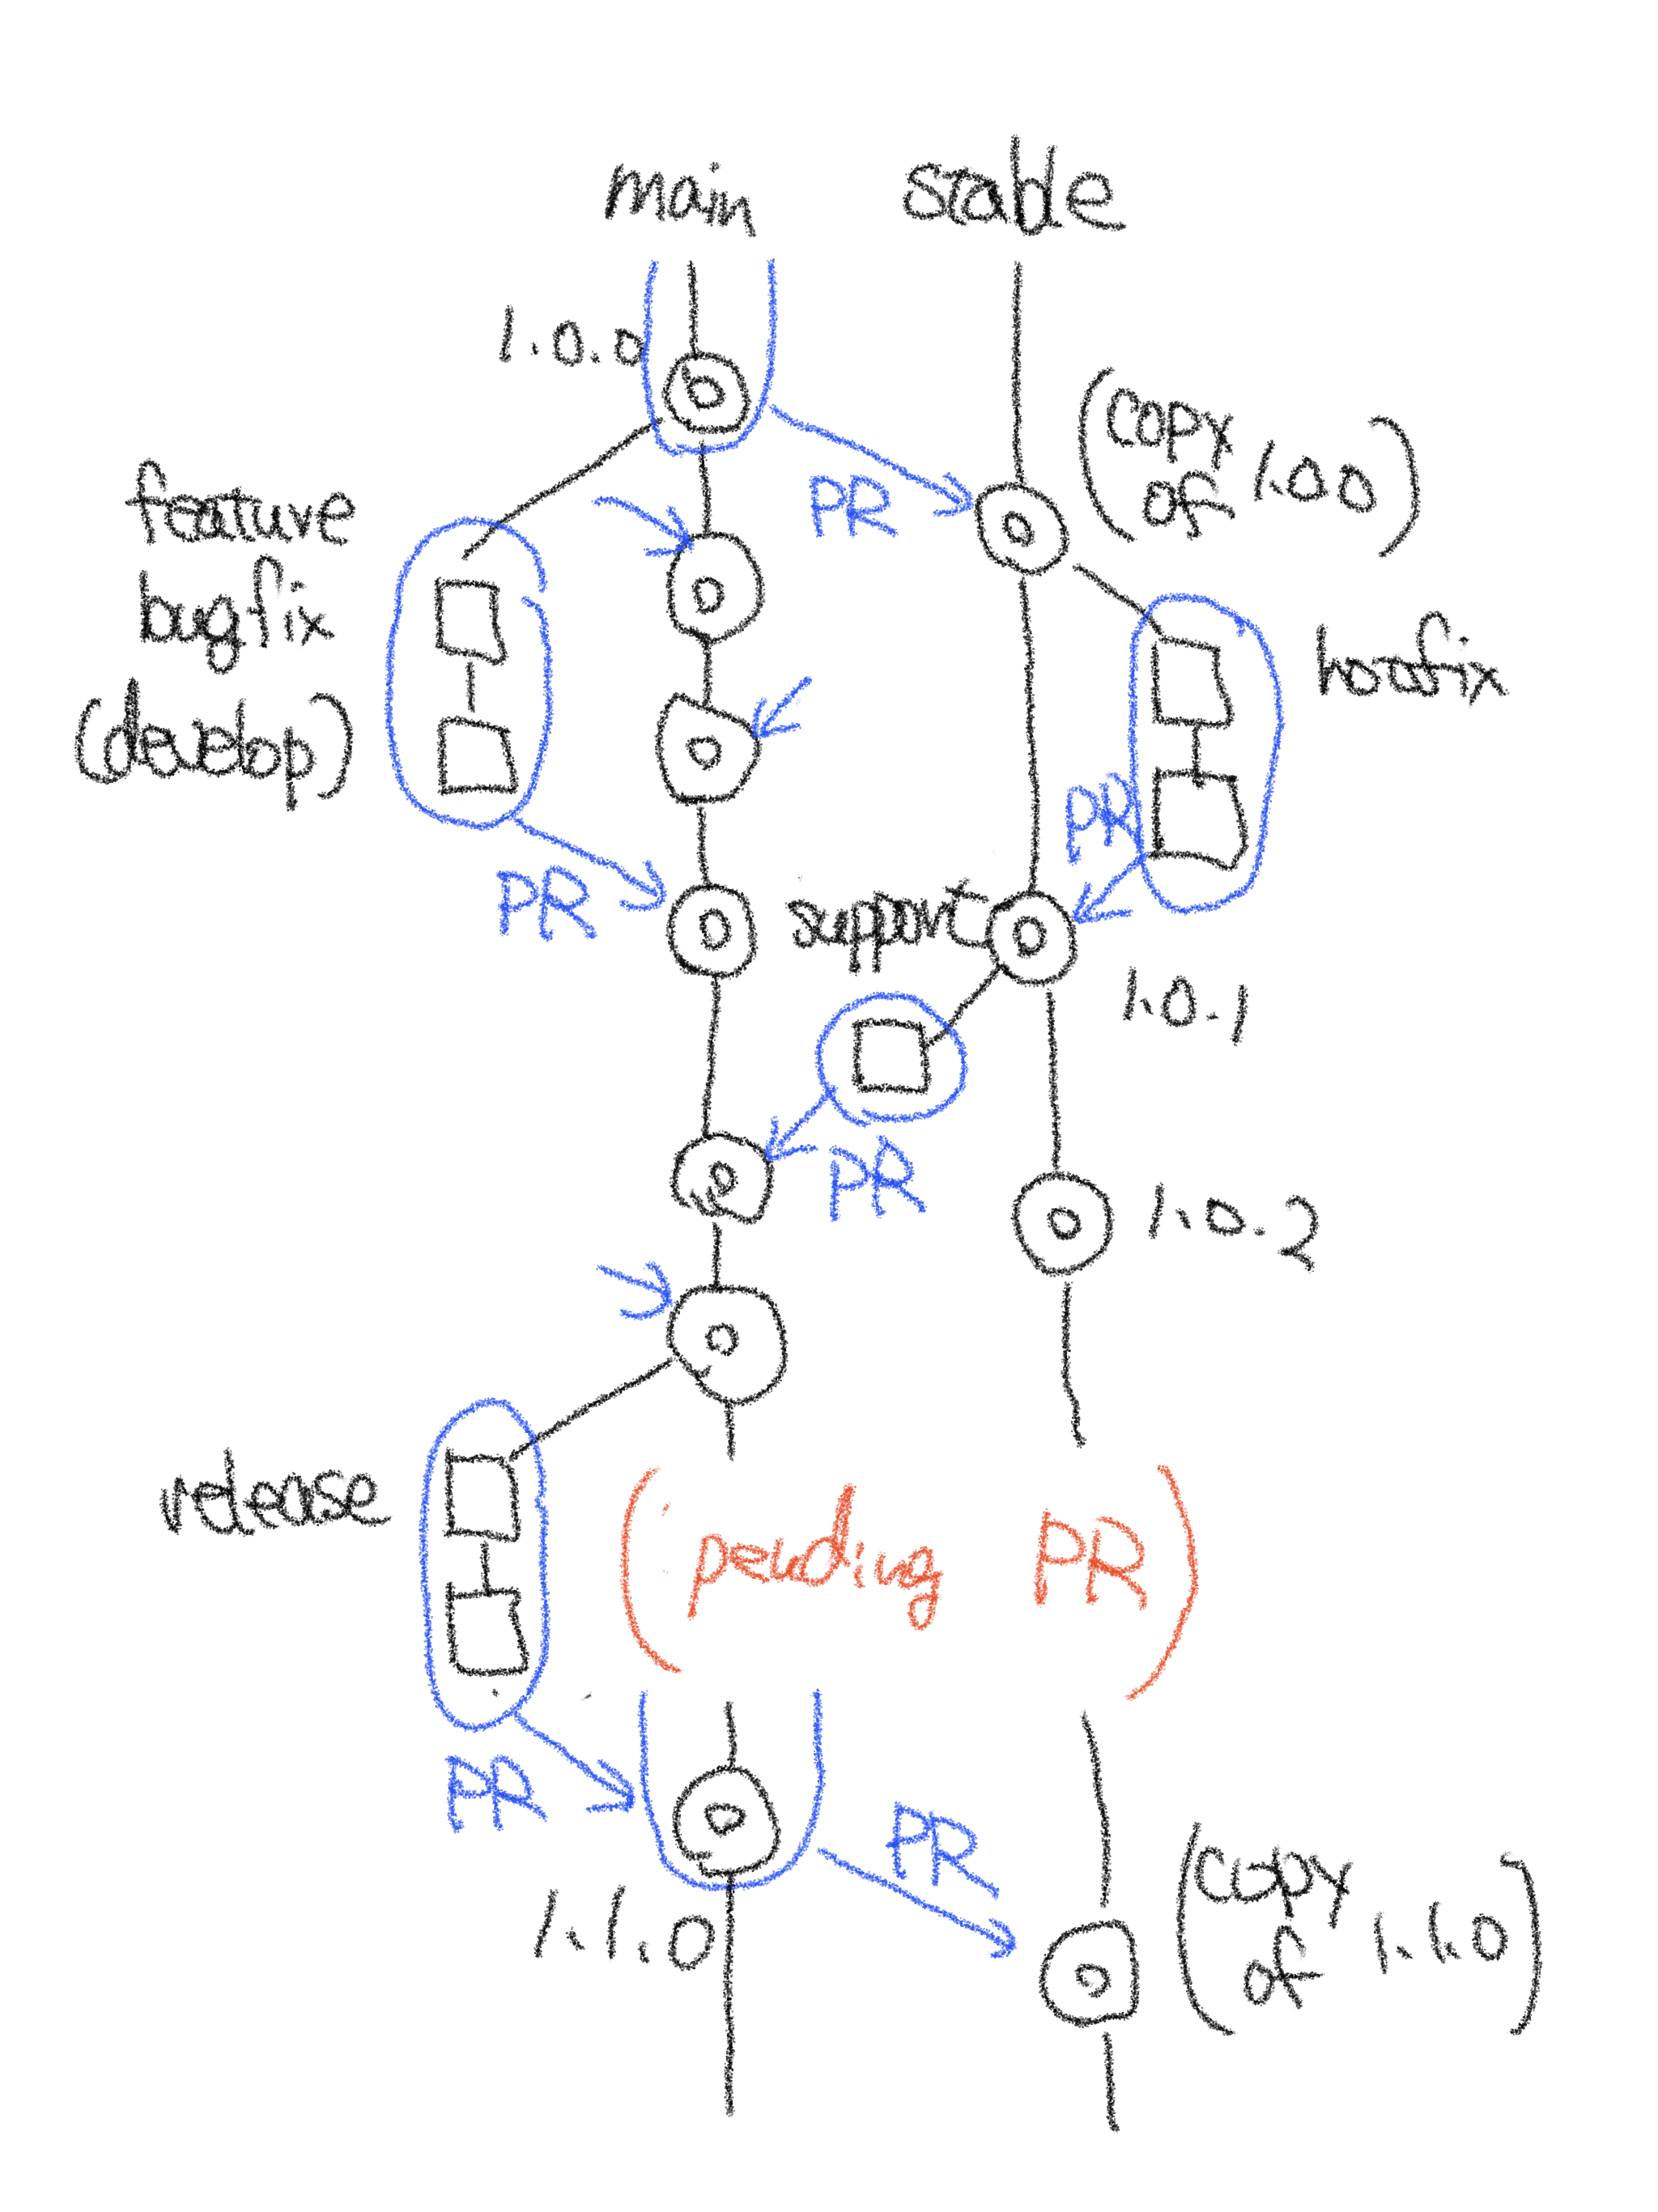 main
stable
1.0.0
(copy
of 1.0.0)
PR
feature
bugfix
(develop)
PR
PR
support
1.0.1
PR
1.0.2
release
(pending PR)
PR
PR
1.1.0
(copy
of 1.1.0)